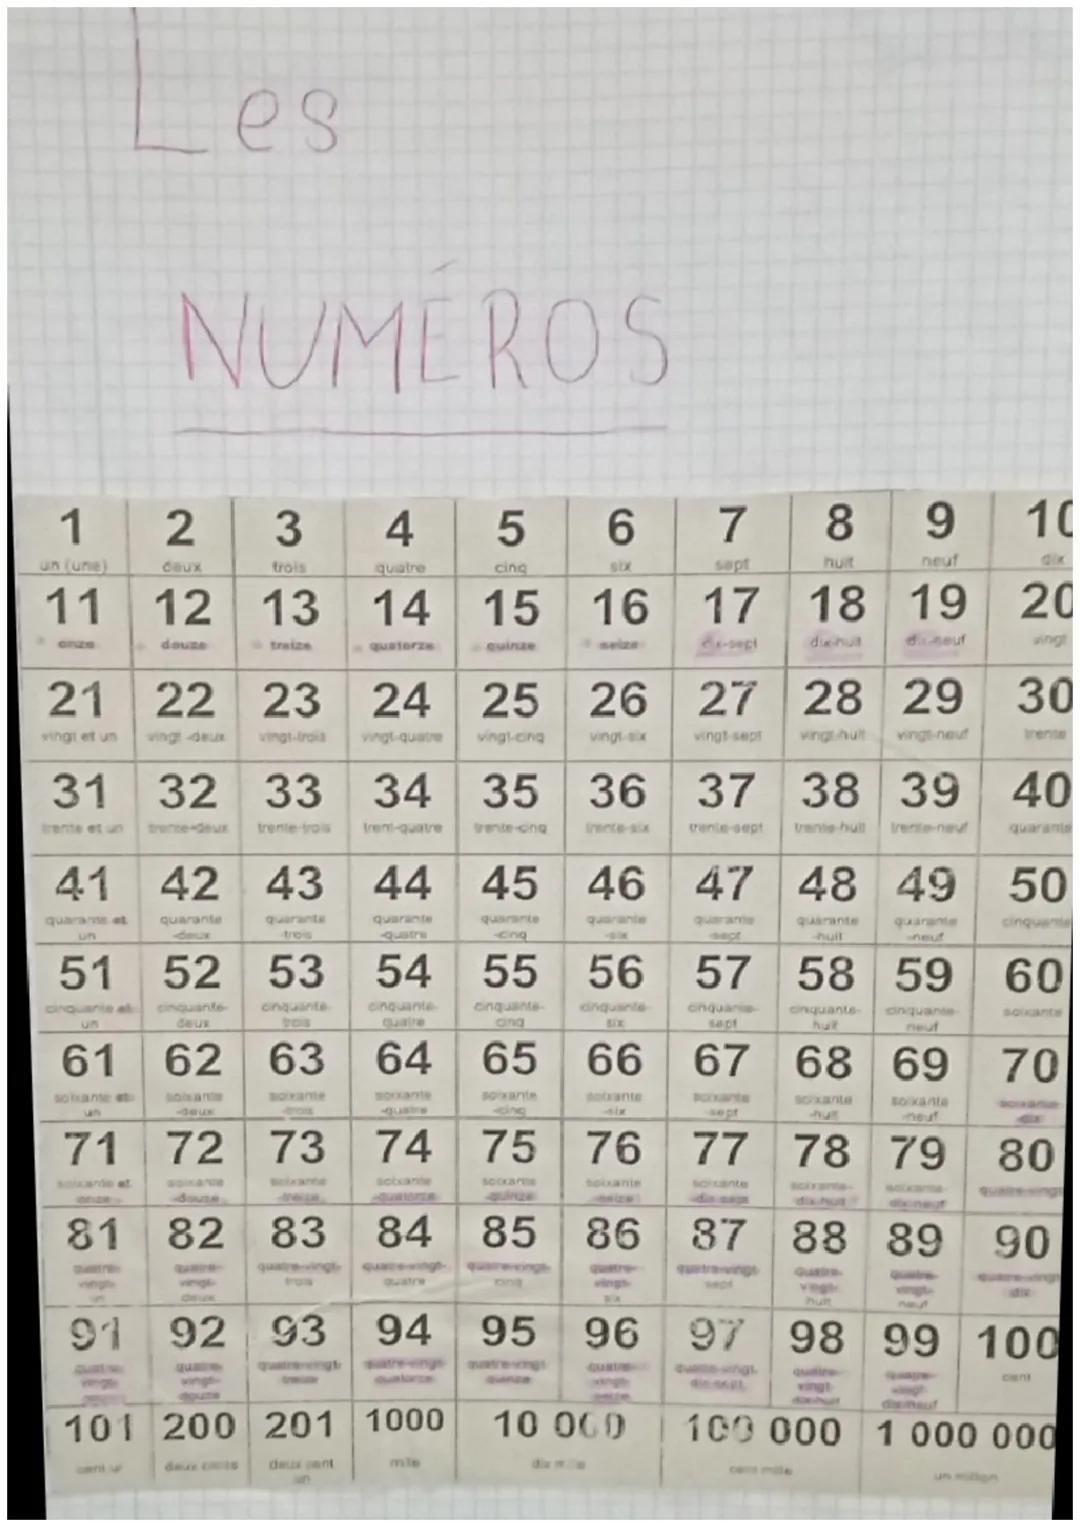 Les
NUMÉROS
1 2 3 4 5 6 7 8 9 10
un (une) deux trois quatre cinq six sept huit neuf dix
11 12 13 14 15 16 17 18 19 20
onze douze treize quatorze quinze seize dix-sept dix-huit dix-neuf vingt
21 22 23 24 25 26 27 28 29 30
vingt et un vingt-deux vingt-trois vingt-quatre vingt-cinq vingt-six vingt-sept vingt-huit vingt-neuf trente
31 32 33 34 35 36 37 38 39 40
trente et un trente-deux trente-trois trent-quatre trente-cinq trente-six trente-sept trente-huit trente-neuf quarante
41 42 43 44 45 46 47 48 49 50
quarante et quarante quarante quarante quarante quarante quarante quarante quarante cinquante
un -deux -trois -quatre -cinq -six -sept -huit -neuf
51 52 53 54 55 56 57 58 59 60
cinquante et cinquante- cinquante- cinquante- cinquante- cinquante- cinquante- cinquante- cinquante- soixante
un deux trois quatre cinq six sept huit neuf
61 62 63 64 65 66 67 68 69 70
soixante et soixante soixante soixante soixante soixante soixante soixante soixante soixante
un -deux -trois -quatre -cinq -six -sept -huit -neuf -dix
71 72 73 74 75 76 77 78 79 80
soixante et soixante soixante soixante soixante soixante soixante soixante- soixante- quatre-vingt
onze -douze -treize -quatorze -quinze -seize -dix-sept dix-huit dix-neuf
81 82 83 84 85 86 87 88 89 90
quatre- quatre- quatre-vingt- quatre-vingt- quatre-vingt- quatre- quatre-vingt- quatre- quatre- quatre-vingt
vingt- vingt- trois quatre cinq vingt- sept vingt- vingt- dix
un deux six huit neuf
91 92 93 94 95 96 97 98 99 100
quatre- quatre- quatre-vingt- quatre-vingt- quatre-vingt- quatre- quatre-vingt- quatre- quatre- cent
vingt- vingt- treize quatorze quinze vingt- dix-sept vingt- vingt-
douze seize dix-huit dix-neuf
101 200 201 1000 10 000 100 000 1 000 000
cent un deux cents deux cent mille dix mille cent mille un million
un